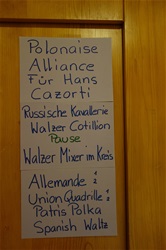 Polonaise
Alliance
Für Hans
Cazorti
Russische Kavallerie
Walzer Cotillion
Pause
Walzer Mixer im Kreis
Allemande 1
Union Quadrille 2
Patris Polka
Spanish Waltz